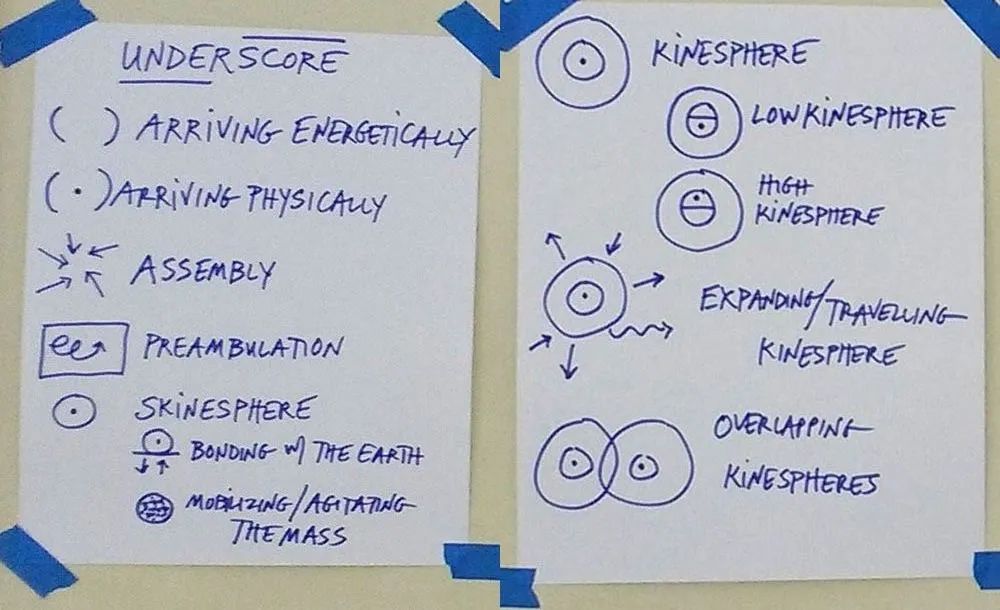 UNDERSCORE
ARRIVING ENERGETICALLY
ARRIVING PHYSICALLY
ASSEMBLY
PREAMBULATION
SKINESPHERE
BONDING W/ THE EARTH
MOBILIZING/AGITATING
THE MASS
KINESPHERE
LOW KINESPHERE
HIGH
KINESPHERE
EXPANDING/TRAVELLING
KINESPHERE
OVERLAPPING
KINESPHERES